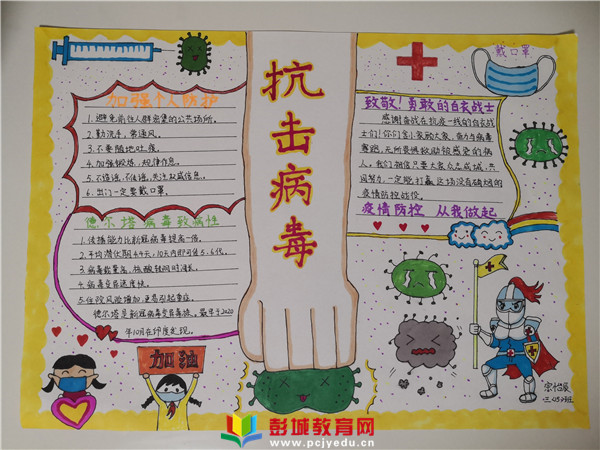 抗击病毒
加强个人防护
1.避免前往人群密集的公共场所。
2.勤洗手,常通风。
3.不要随地吐痰。
4.加强锻炼,规律作息。
5.不造谣,不传谣,关注权威信息。
6.出门一定要戴口罩。
德尔塔病毒致病性
1.传播能力比新冠病毒提高一倍。
2.平均潜伏期4.4天,10天内即可传5、6代。
3.病毒载量高,核酸转阴时间长。
4.病毒变异速度快。
5.住院风险增加,更易引起重症。
德尔塔是新冠病毒变异毒株,最早于2020
年10月在印度发现。
加油
戴口罩
致敬!勇敢的白衣战士
感谢奋战在抗疫一线的白衣战
士们!你们舍小家顾大家,奋力与病毒
赛跑,无所畏惧救助被感染的病
人。我们相信只要大家众志成城,共
同努力,一定能打赢这场没有硝烟的
疫情防控战役。
疫情防控 从我做起
三
班
彭城教育网
www.pcjyedu.cn